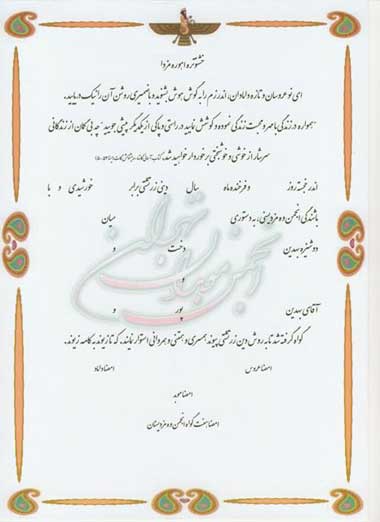 خشنوتره اهوره مزدا
ای نوعروسان و تازه دامادان، اندرزم را به گوش هوش بشنوید و با ضمیری روشن آن را نیک دریابید.
"همواره در زندگی با مهر و محبت زندگی نموده و کوشش نمایید در راستی و پاکی از یکدیگر پیشی جویید" چه بی گمان از زندگانی
سرشار از خوشی و خوشبختی برخوردار خواهید شد.
اندر خجسته روز و فرخنده ماه سال دینی زرتشتی برابر خورشیدی و با
باشندگی انجمن وه مزدیسنی، به دستوری میان
دوشیزه بهدین دخت و
و
آقای بهدین پور و
گواه گرفته شد تا به روش دین زرتشتی پیوند همسری و همتنی و همروانی استوار نمایند. که تا زیوند به کامه زیوند.
امضا عروس امضا داماد
امضا موبد
امضا هفت گواه انجمن وه مزدیسنان
انجمن موبدان تهران